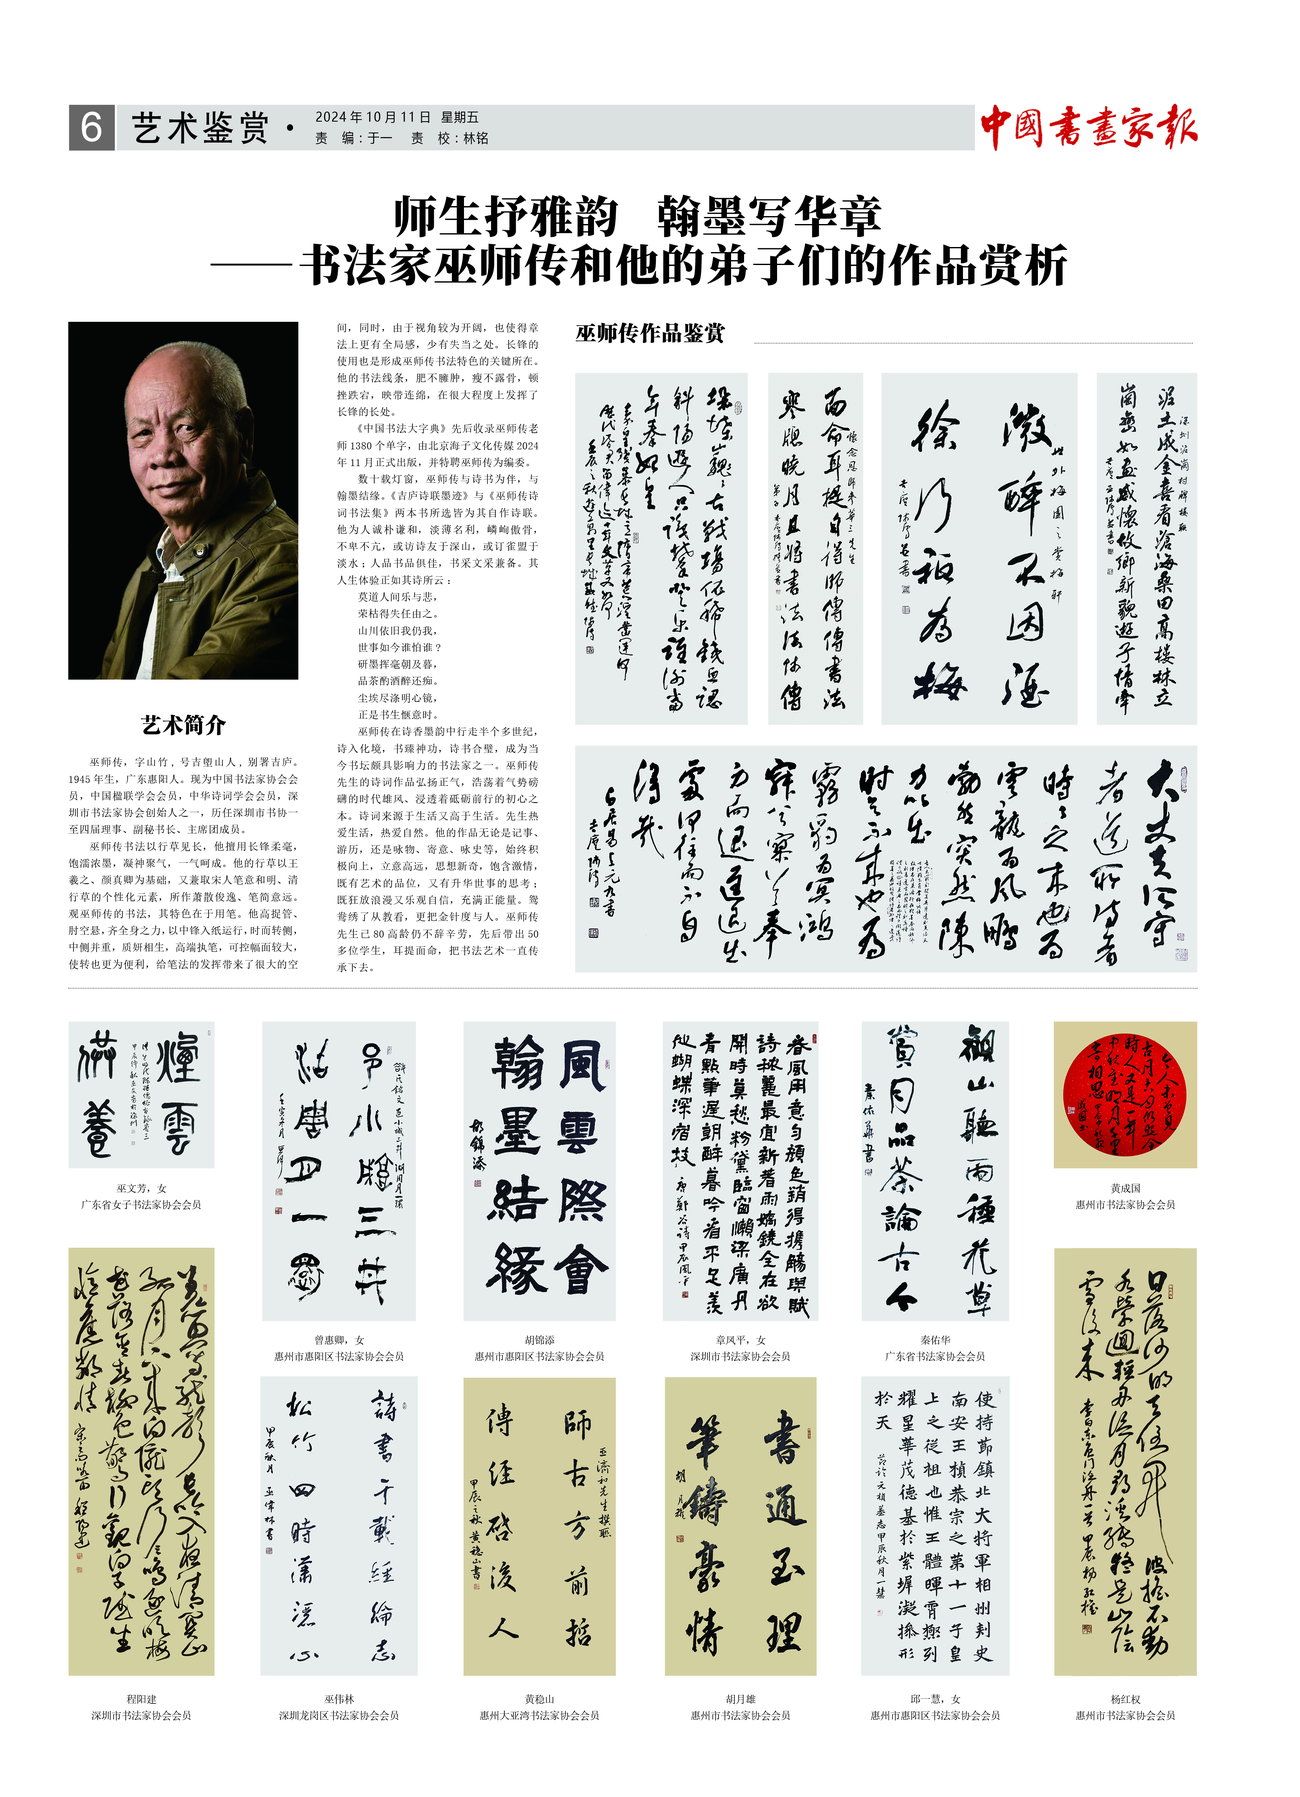 6
艺术鉴赏·
2024年10月11日 星期五
责 编：于一 责 校：林铭
中國書畫家報
师生抒雅韵 翰墨写华章
——书法家巫师传和他的弟子们的作品赏析
艺术简介
巫师传，字山竹，号吉壆山人，别署吉庐。
1945年生，广东惠阳人。现为中国书法家协会会
员，中国楹联学会会员，中华诗词学会会员，深
圳市书法家协会创始人之一，历任深圳市书协一
至四届理事、副秘书长、主席团成员。
巫师传书法以行草见长，他擅用长锋柔毫，
饱濡浓墨，凝神聚气，一气呵成。他的行草以王
羲之、颜真卿为基础，又兼取宋人笔意和明、清
行草的个性化元素，所作萧散俊逸、笔简意远。
观巫师传的书法，其特色在于用笔。他高捉管、
肘空悬，齐全身之力，以中锋入纸运行，时而转侧，
中侧并重，质妍相生，高端执笔，可控幅面较大，
使转也更为便利，给笔法的发挥带来了很大的空
间，同时，由于视角较为开阔，也使得章
法上更有全局感，少有失当之处。长锋的
使用也是形成巫师传书法特色的关键所在。
他的书法线条，肥不臃肿，瘦不露骨，顿
挫跌宕，映带连绵，在很大程度上发挥了
长锋的长处。
《中国书法大字典》先后收录巫师传老
师1380个单字，由北京海子文化传媒2024
年11月正式出版，并特聘巫师传为编委。
数十载灯窗，巫师传与诗书为伴，与
翰墨结缘。《吉庐诗联墨迹》与《巫师传诗
词书法集》两本书所选皆为其自作诗联。
他为人诚朴谦和，淡薄名利，嶙峋傲骨，
不卑不亢，或访诗友于深山，或订雀盟于
淡水；人品书品俱佳，书采文采兼备。其
人生体验正如其诗所云：
莫道人间乐与悲，
荣枯得失任由之。
山川依旧我仍我，
世事如今谁怕谁？
研墨挥毫朝及暮，
品茶酌酒醉还痴。
尘埃尽涤明心镜，
正是书生惬意时。
巫师传在诗香墨韵中行走半个多世纪，
诗入化境，书臻神功，诗书合壁，成为当
今书坛颇具影响力的书法家之一。巫师传
先生的诗词作品弘扬正气，浩荡着气势磅
礴的时代雄风、浸透着砥砺前行的初心之
本。诗词来源于生活又高于生活。先生热
爱生活，热爱自然。他的作品无论是记事、
游历，还是咏物、寄意、咏史等，始终积
极向上，立意高远，思想新奇，饱含激情，
既有艺术的品位，又有升华世事的思考；
既狂放浪漫又乐观自信，充满正能量。鸳
鸯绣了从教看，更把金针度与人。巫师传
先生已80高龄仍不辞辛劳，先后带出50
多位学生，耳提而命，把书法艺术一直传
承下去。
巫师传作品鉴赏
泥土成金喜看滄海桑田高樓林立
微醉不因酒
徐行祇為梅
面命耳提自得師傳傳書法
寒牕曉月且將書法法師傳
大丈夫所守
者道所待者
時時之來也為
雲龍為風鵬
勃然突然陳
力以出
時之不來也為
霧豹為冥鴻
寂兮寥兮奉
身而退進退出
處何往而不自
得哉
煙雲
供養
巫文芳，女
广东省女子书法家协会会员
曾惠卿，女
惠州市惠阳区书法家协会会员
風雲際會
翰墨結緣
胡錦添
胡锦添
惠州市惠阳区书法家协会会员
春風用意勻顏色銷得攜觴與賦
詩穠麗最宜新著雨嬌饒全在欲
開時莫愁粉黛臨窗懶梁廣丹
青點筆遲朝醉暮吟看不足羨
他蝴蝶深宿枝
章凤平，女
深圳市书法家协会会员
觀山聽雨種花草
賞月品茶論古今
秦佑華書
秦佑华
广东省书法家协会会员
黄成国
惠州市书法家协会会员
程阳建
深圳市书法家协会会员
詩書千載經綸志
松竹四時瀟灑心
甲辰秋月 巫偉林書
巫伟林
深圳龙岗区书法家协会会员
師古方前哲
傳經啓後人
甲辰之秋 黃穩山書
黄稳山
惠州大亚湾书法家协会会员
書通至理
筆鑄豪情
胡月雄
胡月雄
惠州市书法家协会会员
使持節鎮北大將軍相州刺史
南安王楨恭宗之第十一子皇
上之從祖也惟王體暉霄極列
耀星華茂德基於紫墀凝操形
於天
邱一慧，女
惠州市惠阳区书法家协会会员
日落沙明天倒開 波搖石動
水縈迴輕舟泛月尋溪轉疑是山陰
雪後來
杨红权
惠州市书法家协会会员